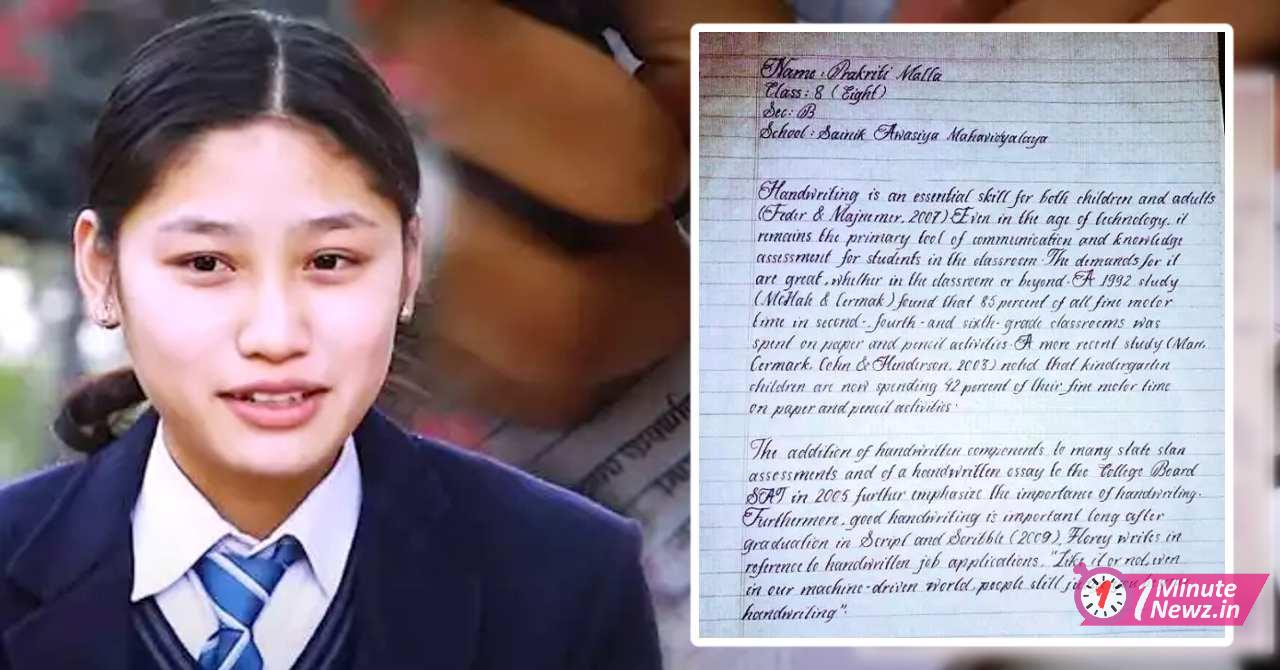 Name : Prakriti Malla
Class : 8 (Eight)
Sec : B
School : Sainik Awasiya Mahavidyalaya
Handwriting is an essential skill for both children and adults
(Feder & Majnemer, 2007) Even in the age of technology, it
remains the primary tool of communication and knowledge
assessment for students in the classroom. The demands for it
are great, whether in the classroom or beyond. A 1992 study
(McHale & Cermak) found that 85 percent of all fine motor
time in second-, fourth- and sixth-grade classrooms was
spent on paper and pencil activities. A more recent study (Marr,
Cermark, Cohn & Henderson, 2003) noted that kindergarten
children are now spending 42 percent of their fine motor time
on paper and pencil activities.
The addition of handwritten components to many state
assessments and of a handwritten essay to the College Board
SAT in 2005 further emphasize the importance of handwriting.
Furthermore, good handwriting is important long after
graduation in Script and Scribble (2009), Florey writes in
reference to handwritten job applications, "Like it or not, even
in our machine-driven world, people still
handwriting".
1 1 Minute
Newz.in